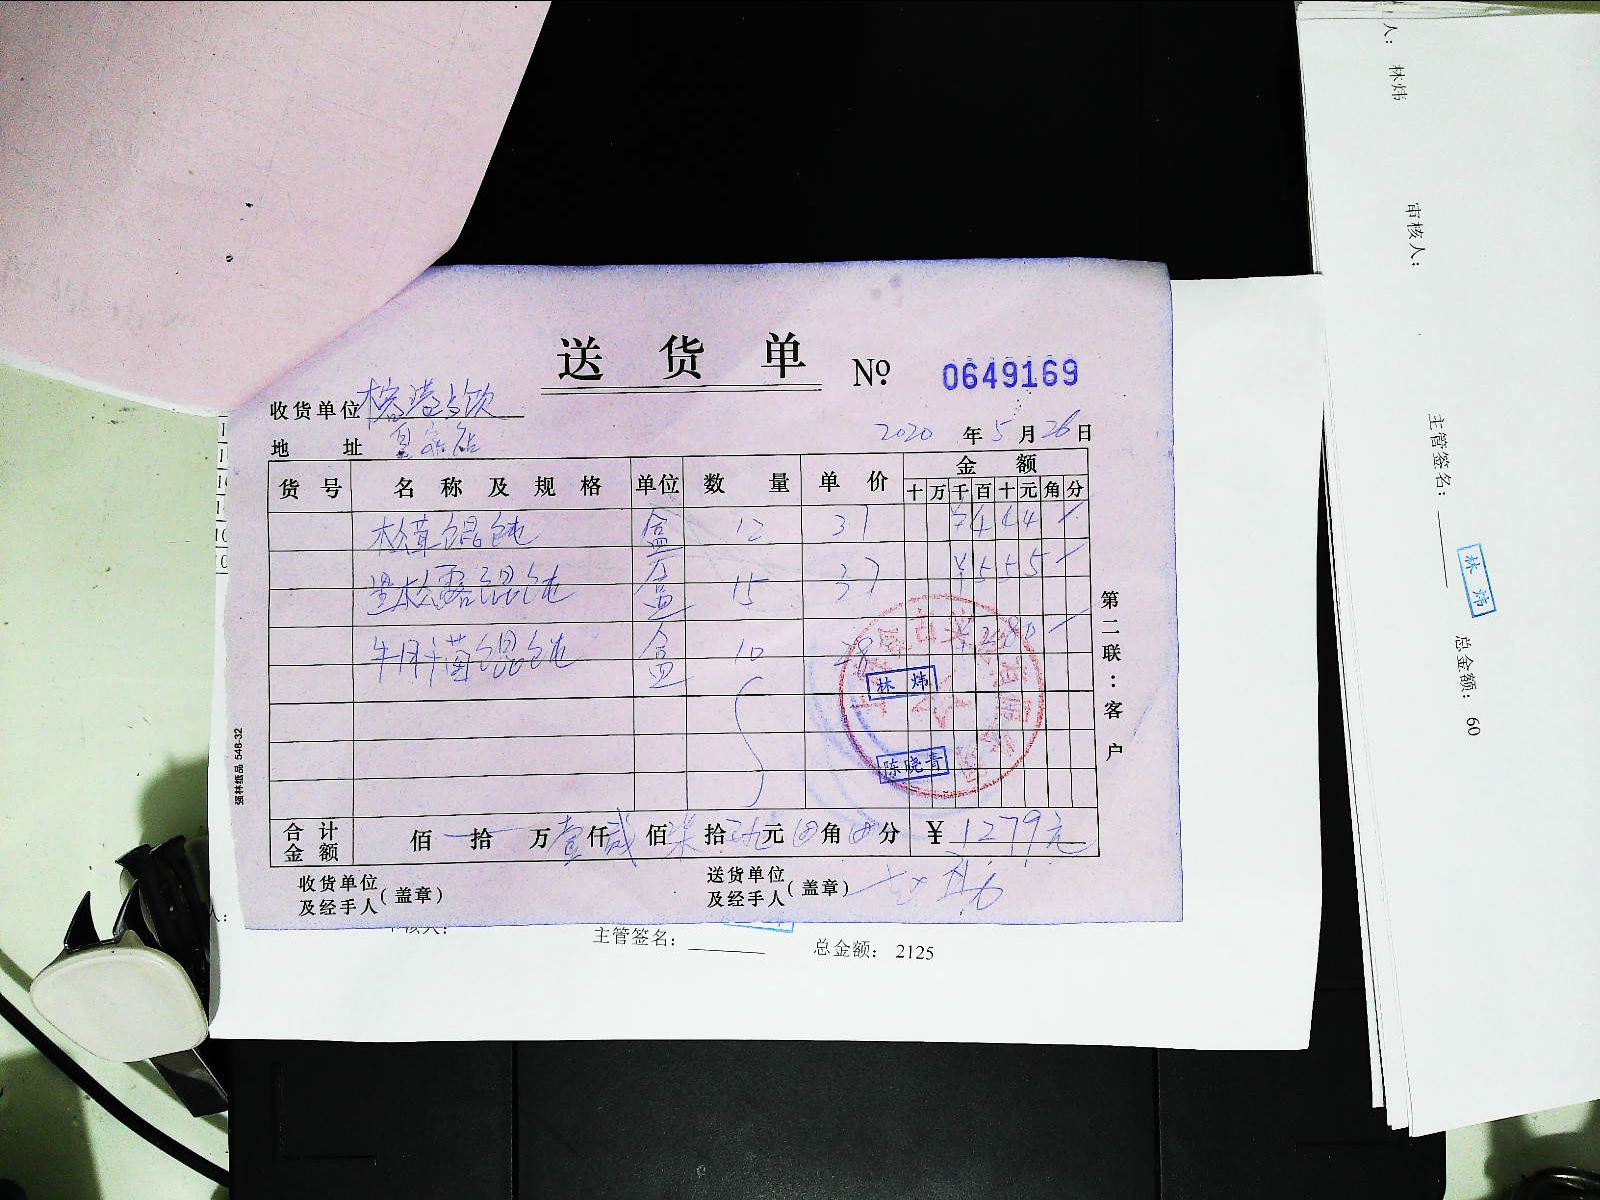 送货单 № 0649169
收货单位
地址
2020年5月26日
货号 名称及规格 单位 数量 单价 金额
十万千百十元角分
松茸馄饨 盒 12 37 ¥444
黑松露馄饨 盒 15 37 ¥555
牛肝菌馄饨 盒 10 28 ¥280
林炜
陈晓青
合计金额 佰拾万壹仟贰佰柒拾玖元⊗角⊗分 ¥1279元
收货单位及经手人(盖章) 送货单位及经手人(盖章)
第二联：客户
强林纸品 548-32
主管签名： 总金额： 2125
人： 林炜 审核人： 主管签名： 林炜 总金额： 60